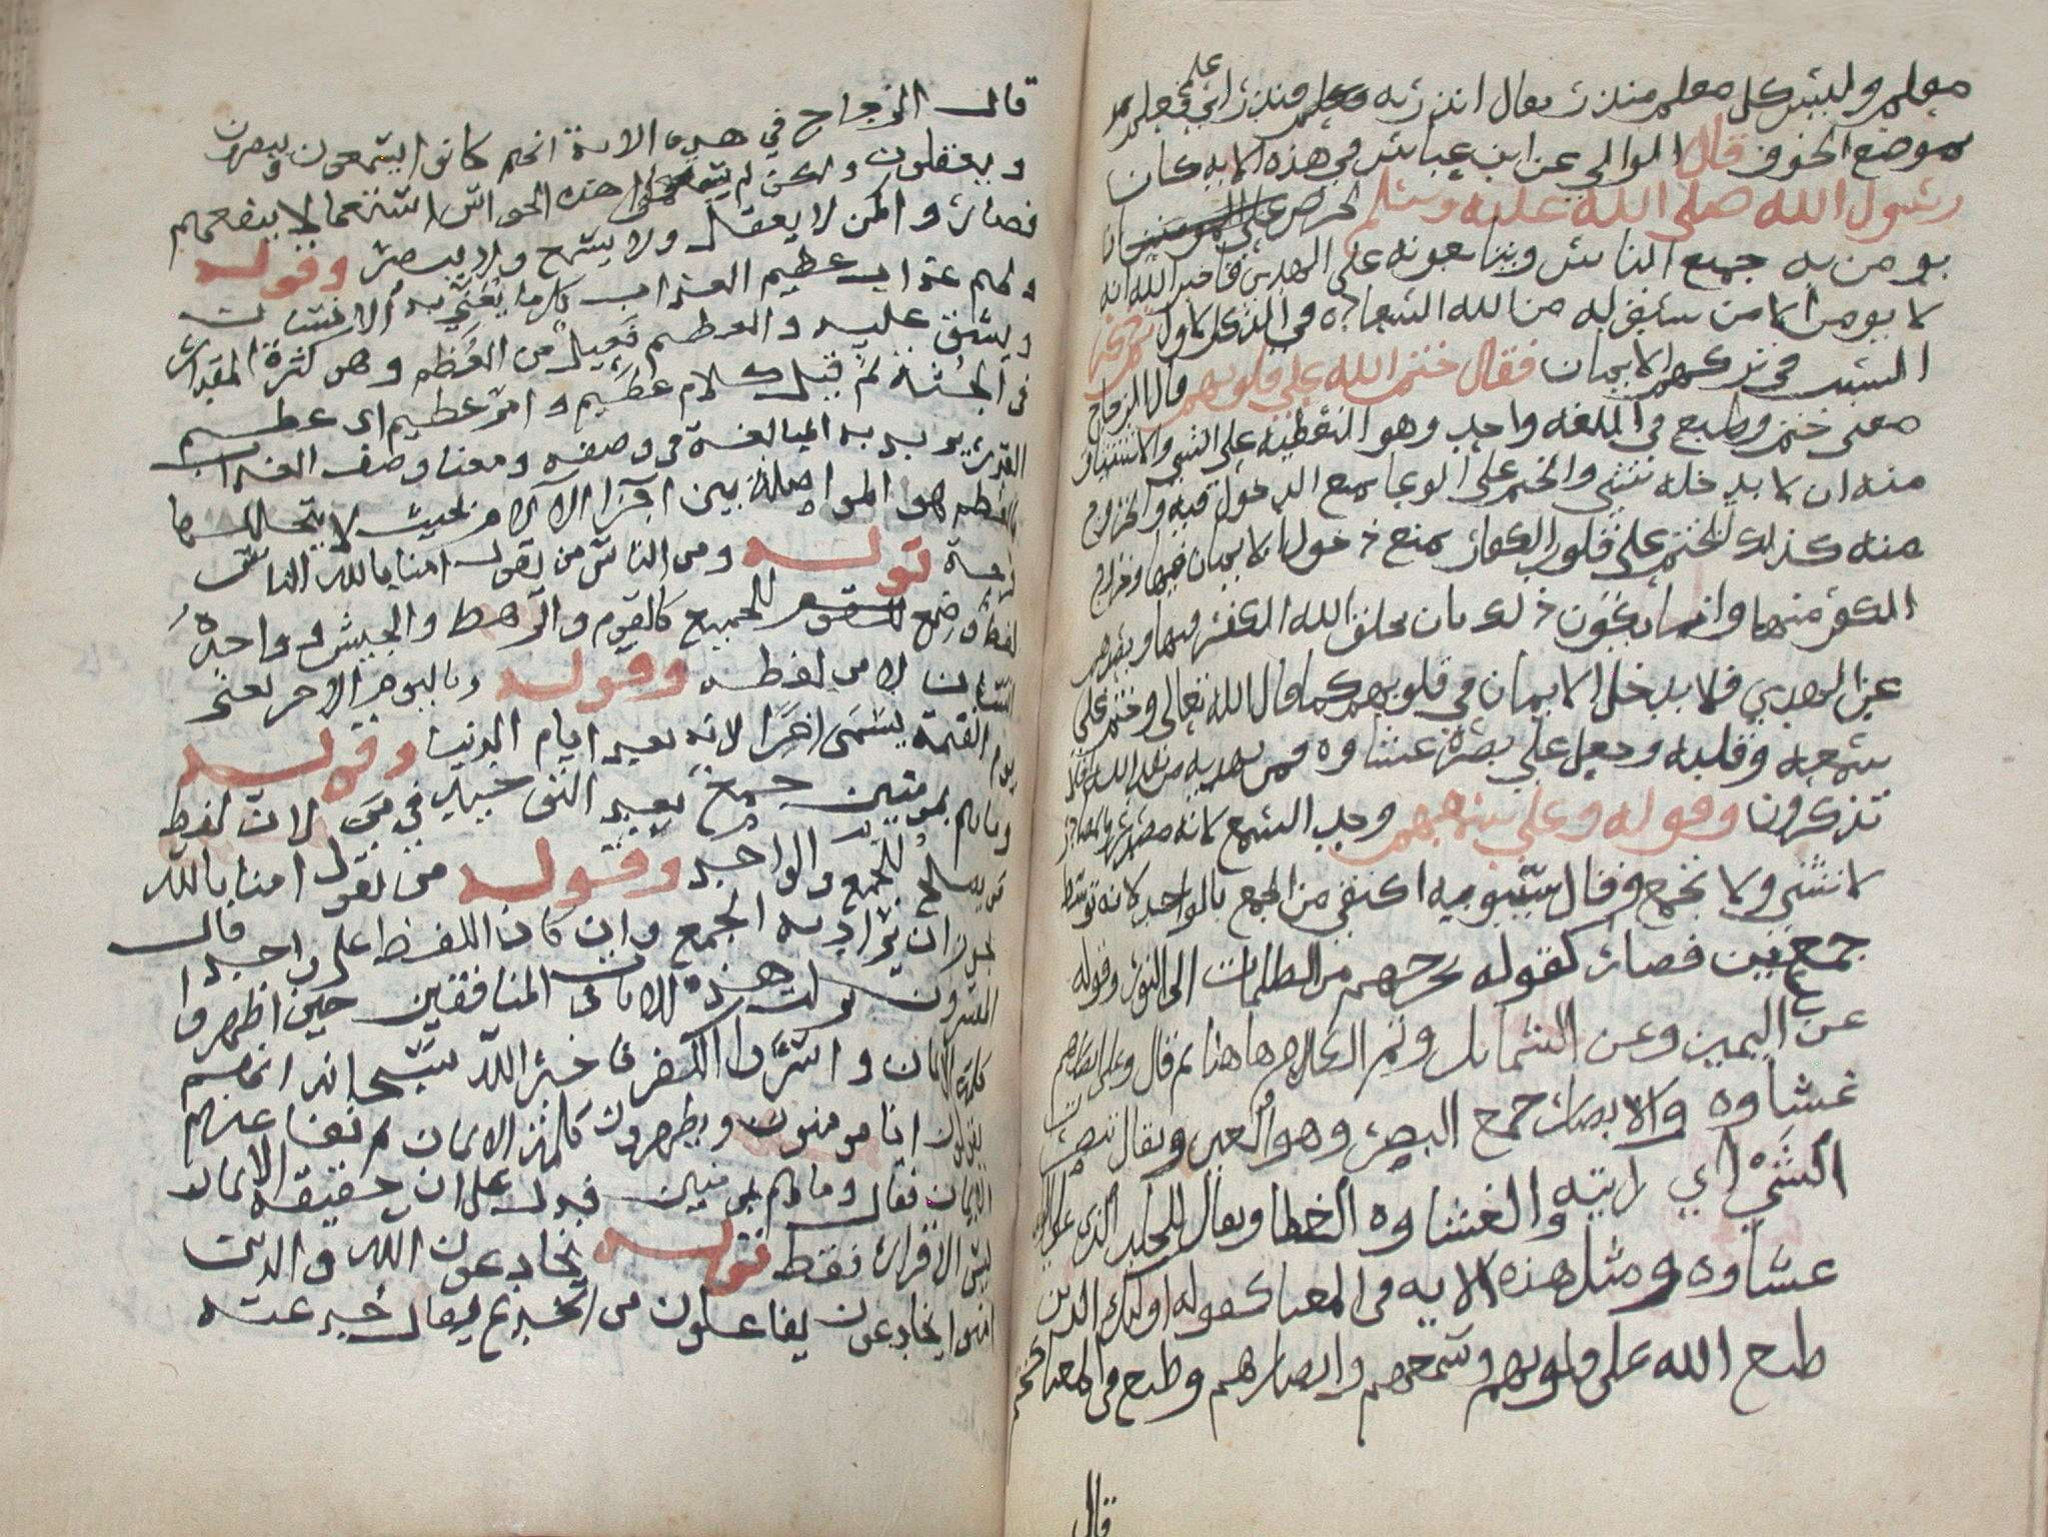 معلم وليس كل معلم منذر يقال انذرته فعلم منذر اي علم فعلم
موضع الخوف قال الوالبي عن ابن عباس في هذه الايه كان
رسول الله صلى الله عليه وسلم يحرص على المومنين ان
يومن به جميع الناس ويتابعونه على الهدى فاخبر الله انه
لا يومن الا من سبق له من الله السعاده في الذكر الاول
السبب في تركهم الايمان فقال ختم الله على قلوبهم قال الزجاج
معنى ختم وطبع في اللغه واحد وهو التغطيه على الشي والاستيثاق
منه ان لا يدخله شي والختم على الوعا منع الدخول فيه والخروج
منه كذلك الختم على قلوب الكفار يمنع دخول الايمان فيها وخروج
الكفر منها وانما يكون ذلك بان يخلق الله الكفر فيها ويصدهم
عن الهدى فلا يدخل الايمان في قلوبهم كما قال الله تعالى وختم على
سمعه وقلبه وجعل على بصره غشاوه فمن يهديه من بعد الله افلا
تذكرون وقوله وعلى سمعهم وحد السمع لانه مصدر والمصادر
لا تثنى ولا تجمع وقال سيبويه اكتفي من الجمع بالواحد لانه توسط
جمعين فصار كقوله يخرجهم من الظلمات الى النور وقوله
عن اليمين وعن الشمائل وتم الكلام هاهنا ثم قال وعلى ابصارهم
غشاوه والابصار جمع البصر وهو العين ويقال تبصرت
الشي اي رايته والغشاوه الغطا ويقال للجلد الذي على الولد
غشاوه ومثل هذه الايه في المعنا كقوله اولئك الذين
طبع الله على قلوبهم وسمعهم وابصارهم وطبع في المعنا ختم
قال
قال الزجاج في هذه الاية انهم كانوا يسمعون ويبصرون
ويعقلون ولكن لم يستعملوا هذه الحواس استعمالا ينفعهم
فصاروا كمن لا يعقل ولا يسمع ولا يبصر وقوله
ولهم عذاب عظيم العذاب كل ما يعنى به الانسان
ويشق عليه والعظيم فعيل من العظم وهو كثرة المقدار
في الجثة ثم قيل كلام عظيم وامر عظيم اى عظيم
القدر يريد به المبالغة فى وصفه ومعنا وصف العذاب
بالعظم هو المواصلة بين اجزا الالام بحيث لا يتخللها
فرجة قوله ومن الناس من يقول امنا بالله الناس
لفظ وضع للجميع كالقوم والرهط والجيش وواحده
انسان لا من لفظه وقوله وباليوم الاخر يعنى
يوم القيمة يسمى اخرا لانه بعد ايام الدنيا وقوله
وما هم بمومنين جمع بعد التوحيد في من لان لفظ
من يصلح للجمع والواحد وقوله من يقول امنا بالله
يجوز ان يراد به الجمع وان كان اللفظ على واحدا قال
المفسرون نزلت هذه الاية فى المنافقين حين اظهروا
كلمة الايمان واسروا الكفر فاخبر الله سبحانه انهم
يقولون انا مومنون ويظهرون كلمة الايمان ثم نفا عنهم
الايمان فقال وما هم بمومنين فدل على ان حقيقة الايمان
ليس الاقرار فقط قوله يخادعون الله والذين
امنوا يخادعون يفاعلون من الخدع يقال خدعته